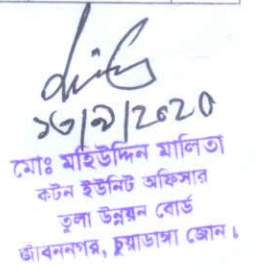 ১৬/৯/2020
মোঃ মহিউদ্দিন মালিতা
কটন ইউনিট অফিসার
তুলা উন্নয়ন বোর্ড
জীবননগর, চুয়াডাঙ্গা জোন।